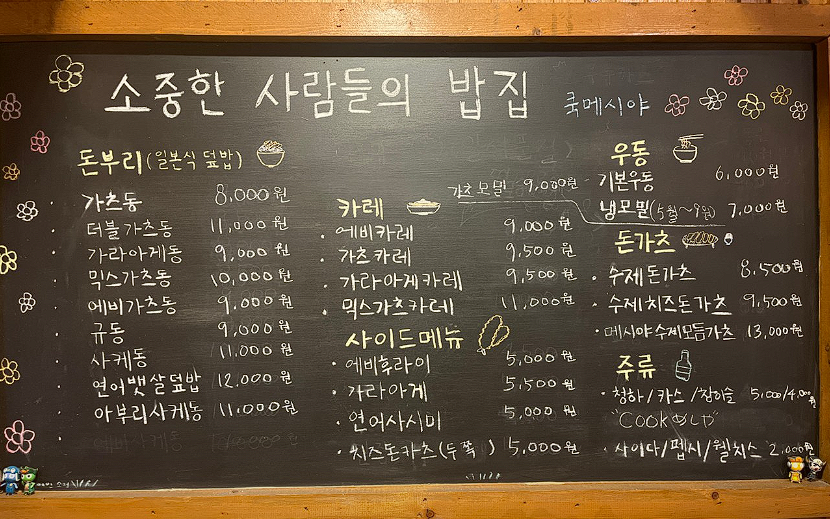 소중한 사람들의 밥집 쿡메시야
돈부리 (일본식 덮밥)
가츠동 8,000원
더블가츠동 11,000원
가라아게동 9,000원
믹스가츠동 10,000원
에비가츠동 9,000원
규동 9,000원
사케동 11,000원
연어뱃살덮밥 12,000원
아부리사케동 11,000원
가츠모밀 9,000원
카레
에비카레 9,000원
가츠카레 9,500원
가라아게카레 9,500원
믹스가츠카레 11,000원
사이드메뉴
에비후라이 5,000원
가라아게 5,500원
연어사시미 5,000원
치즈돈카츠(두쪽) 5,000원
우동
기본우동 6,000원
냉모밀(5월~9월) 7,000원
돈가츠
수제돈가츠 8,500원
수제치즈돈가츠 9,500원
메시야수제모듬가츠 13,000원
주류
청하/카스/참이슬 5,000/4,000원
"Cookめしや"
사이다/펩시/웰치스 2,000원